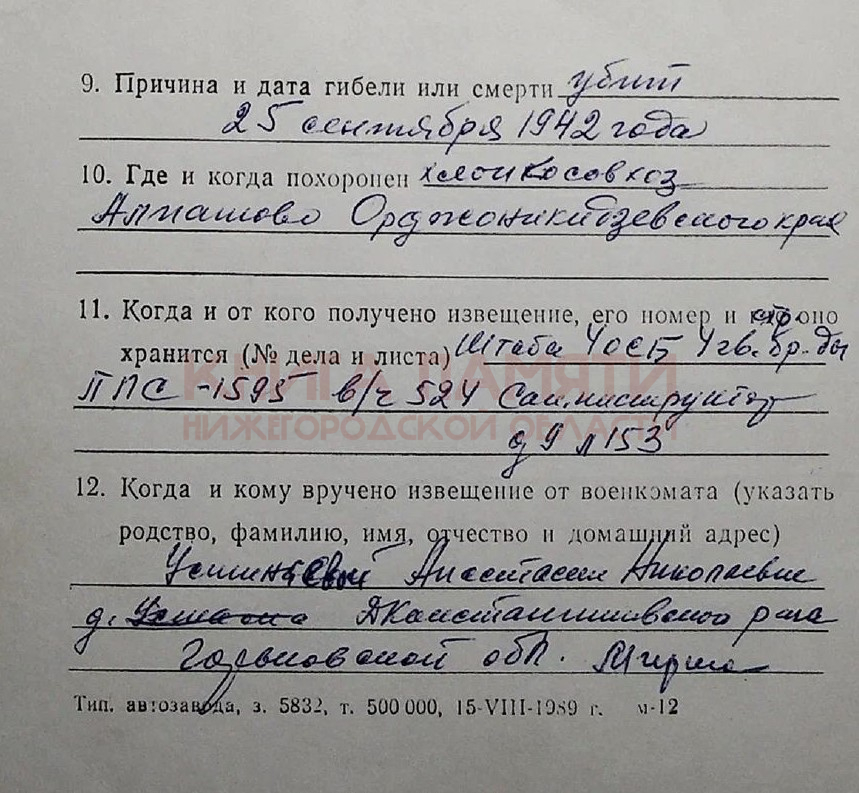 9. Причина и дата гибели или смерти убит
25 сентября 1942 года
10. Где и когда похоронен хлопкосовхоз
Алпатово Орджоникидзевского края
11. Когда и от кого получено извещение, его номер и где оно
хранится (№ дела и листа) Штаба 4 осб 4 гв. бр-ды
КНИГА ПАМЯТИ
ППС-1595 в/ч 524 Сан.инструктор
НИЖЕГОРОДСКОЙ ОБЛАСТИ
д 9 л 153
12. Когда и кому вручено извещение от военкомата (указать
родство, фамилию, имя, отчество и домашний адрес)
Анастасии Николаевне
д. Д Константиновского р-на
Горьковской обл.
Тип. автозавода, з. 5832, т. 500 000, 15-VIII-1989 г. м-12